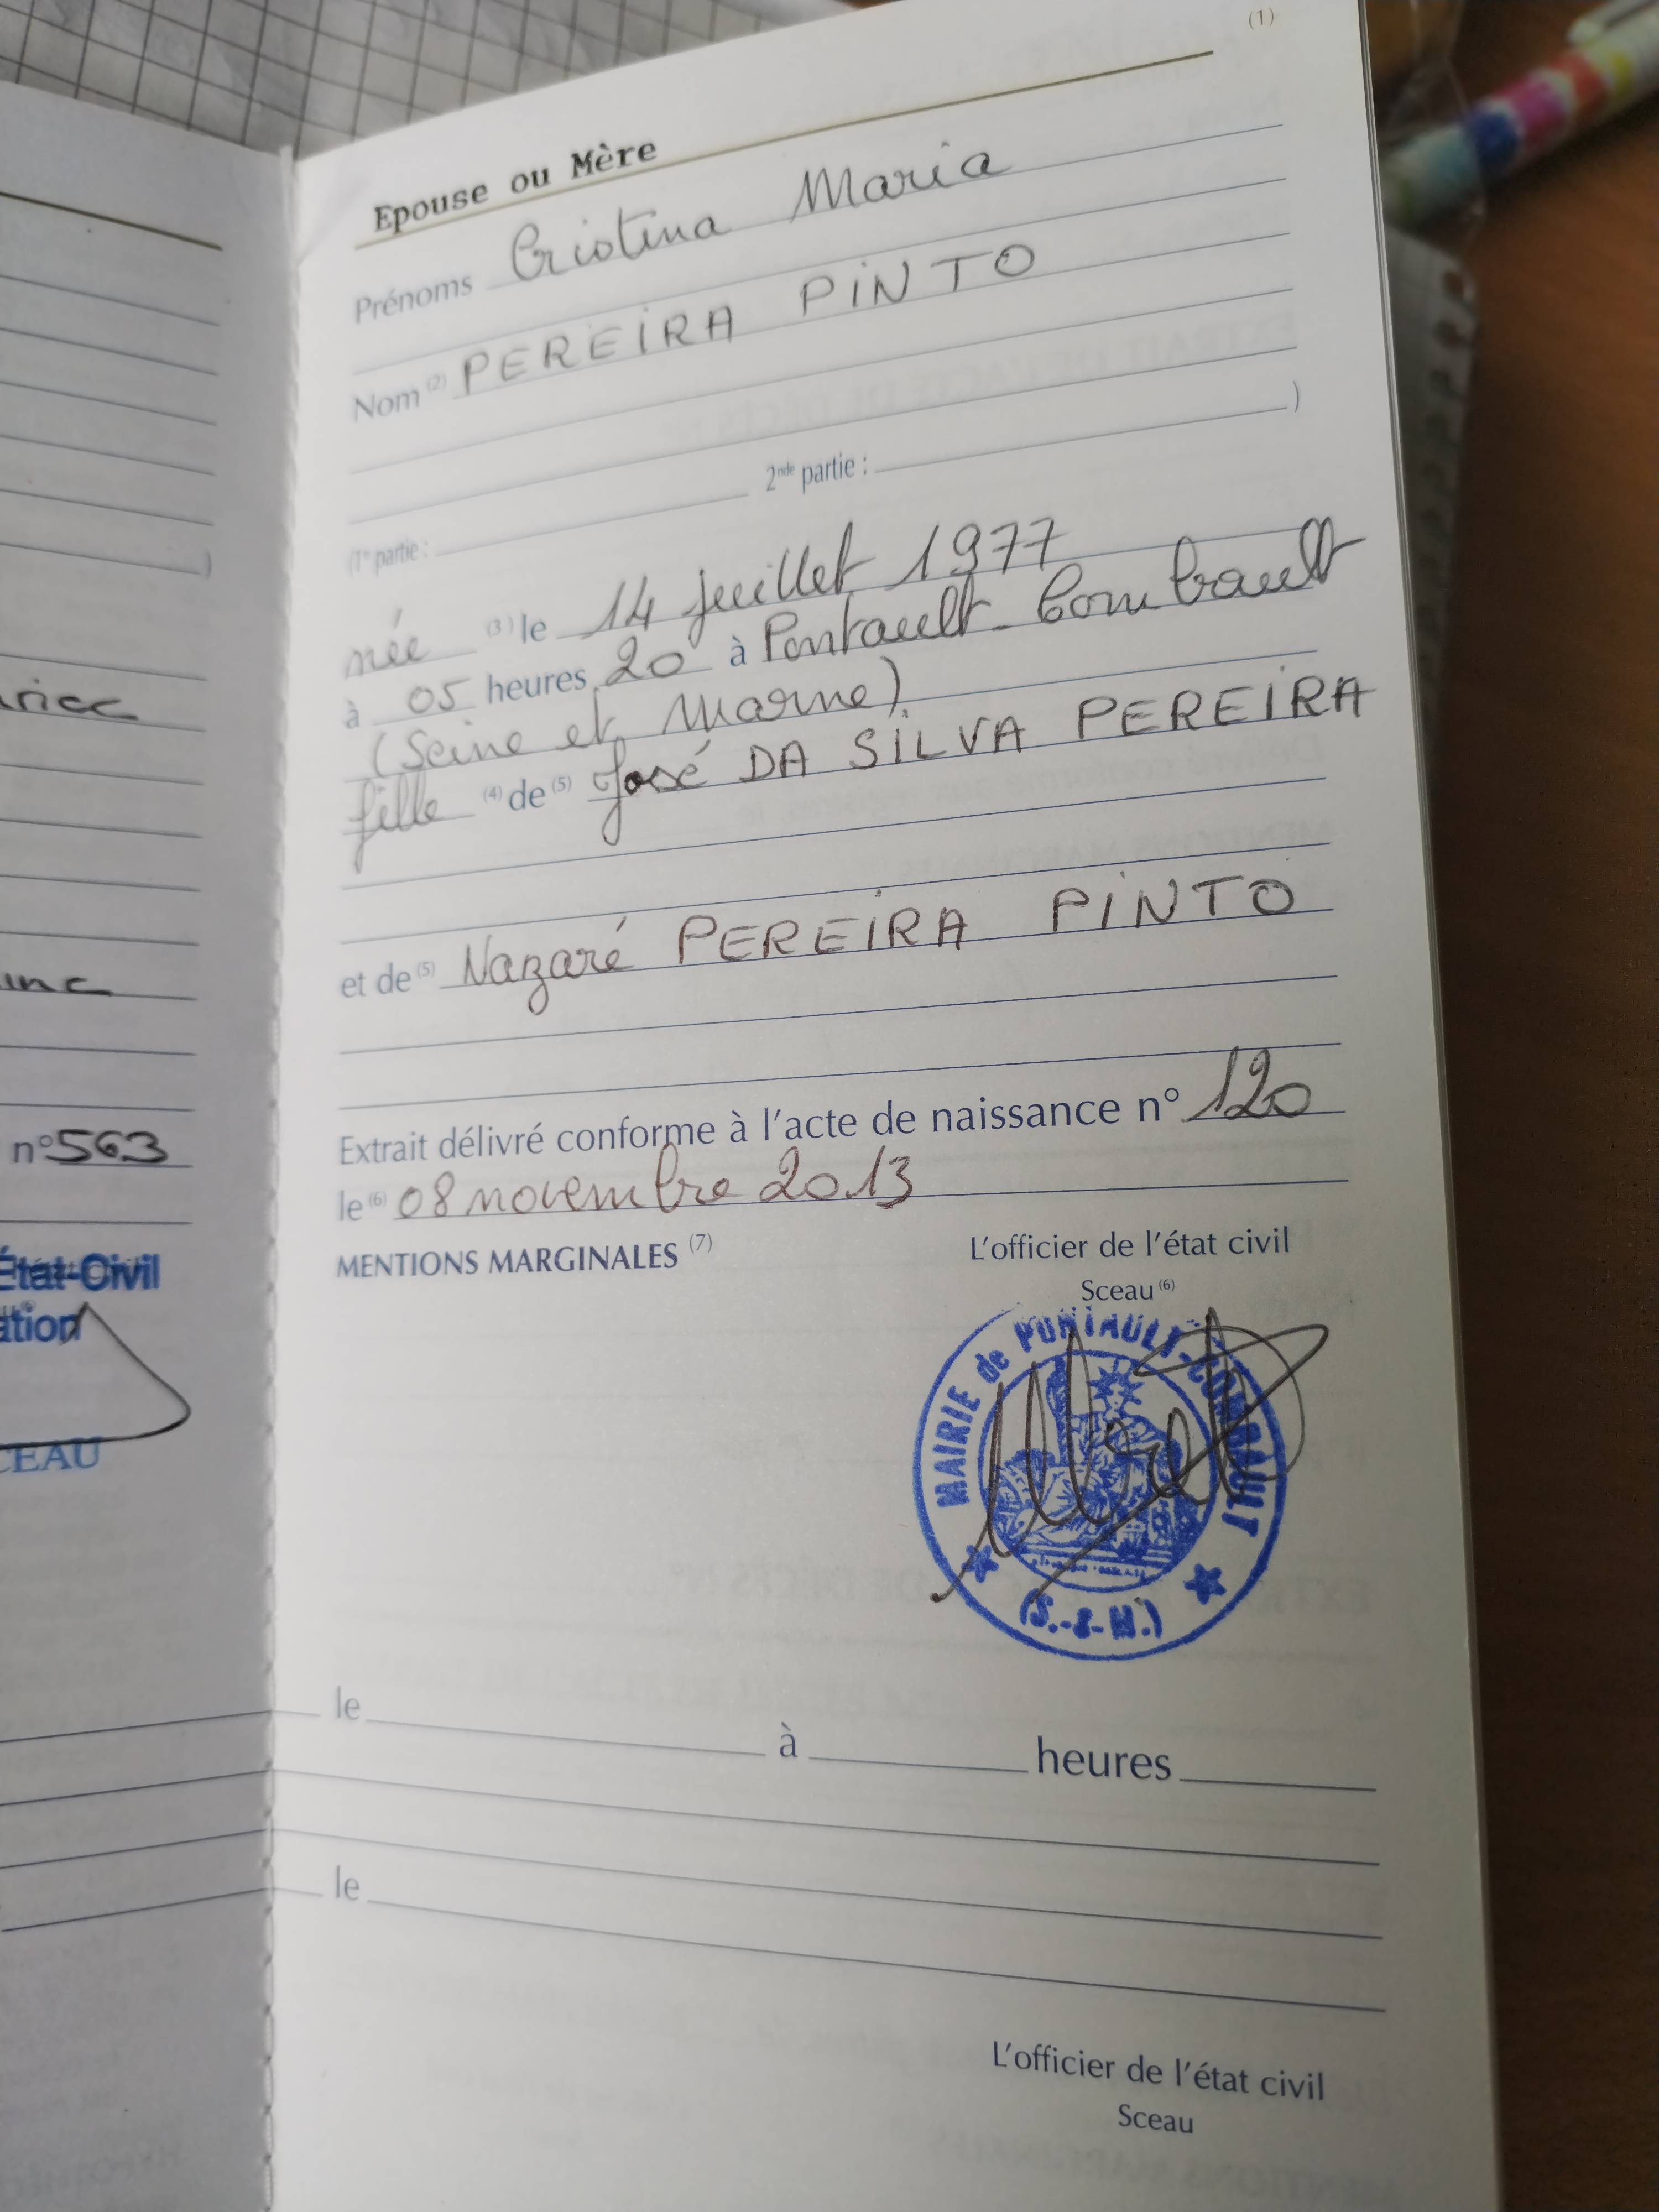 (1)
Epouse ou Mère
Prénoms Cristina Maria
Nom (2) PEREIRA PINTO
(1re partie : 2nde partie : )
née (3) le 14 juillet 1977
à 05 heures 20 à Pontault-Combault
(Seine et Marne)
fille (4) de (5) José DA SILVA PEREIRA
et de (5) Nazaré PEREIRA PINTO
Extrait délivré conforme à l'acte de naissance n° 120
le (6) 08 novembre 2013
MENTIONS MARGINALES (7)
L'officier de l'état civil
Sceau (6)
MAIRIE de PONTAULT-COMBAULT
(S.-&-M.)
le à heures
le
L'officier de l'état civil
Sceau
)
n° 563
État-Civil
CEAU